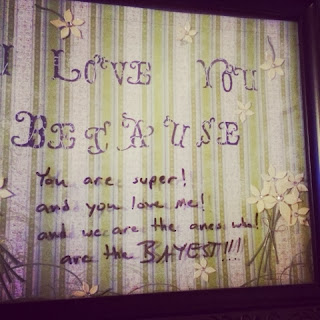 I LOVE YOU
BECAUSE
You are super!
and you love me!
and we are the ones who!
are the BAYEST!!!